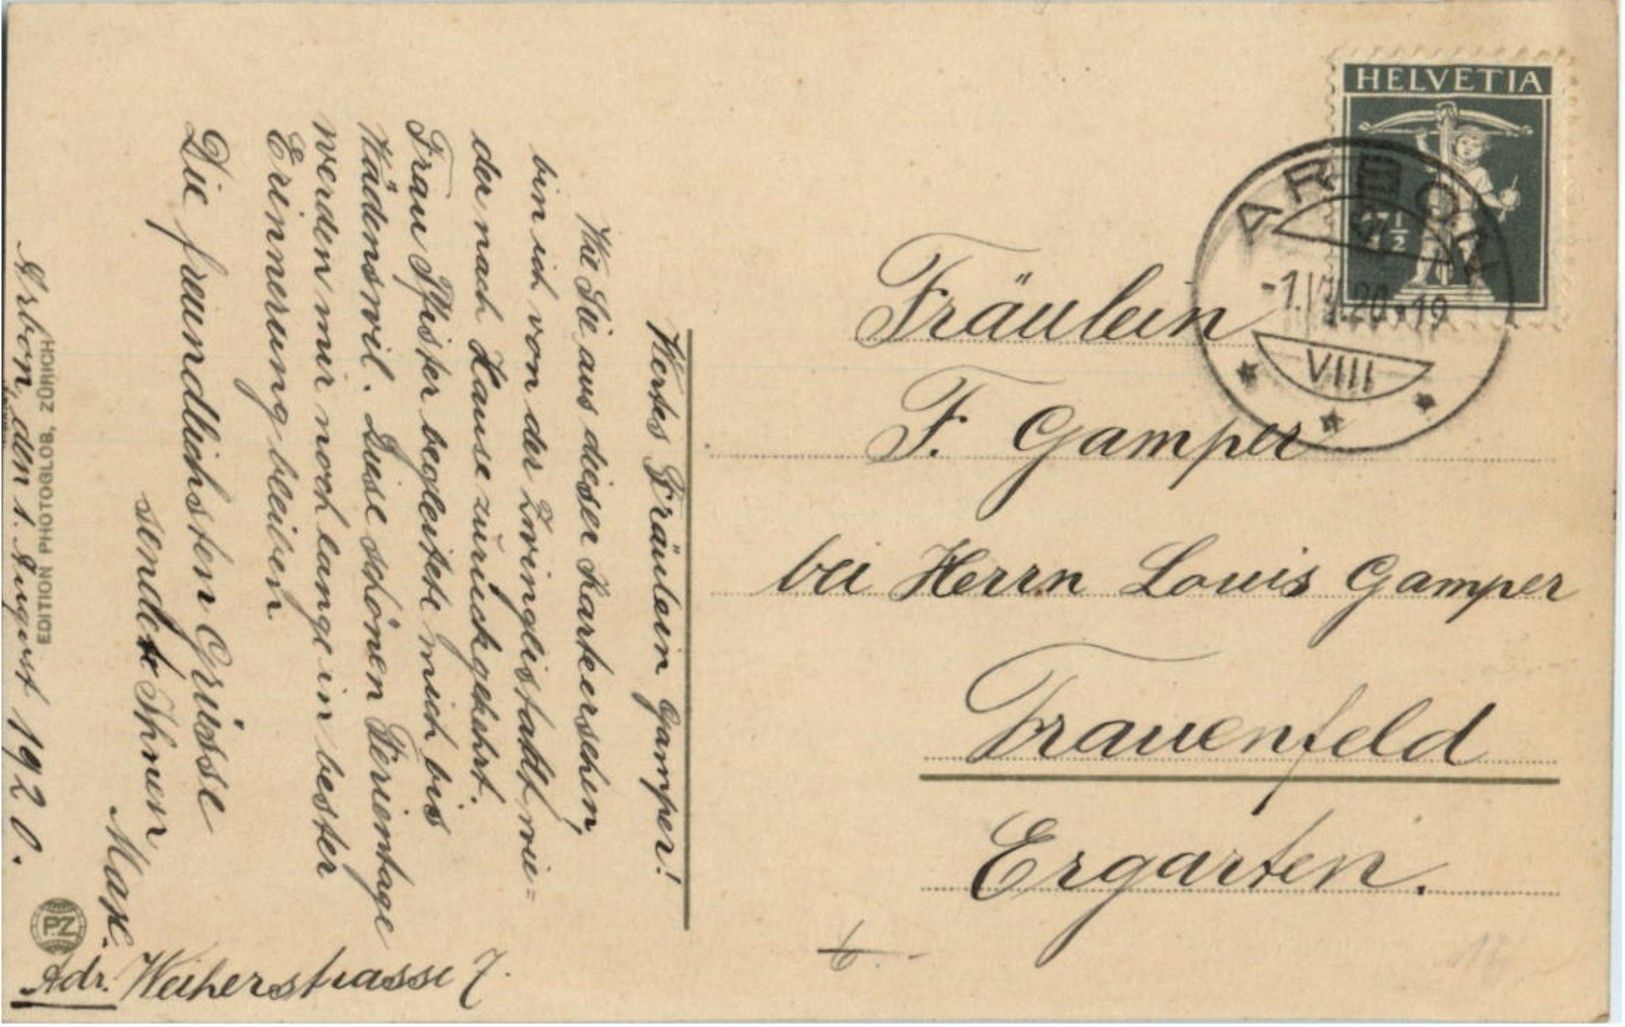 Wertes Fräulein Gamper!
Wie Sie aus dieser Karte ersehen,
bin ich von der Zwinglistadt wie=
der nach Hause zurückgekehrt.
Frau Pfister begleitete mich bis
Wädenswil. Diese schönen Ferientage
werden mir noch lange in bester
Erinnerung bleiben.
Die freundlichsten Grüsse
sendet Ihnen
Max.
Arbon, den 1. August 1920.
Adr. Weiherstrasse 7.
EDITION PHOTOGLOB, ZÜRICH
P.Z
HELVETIA
7½
ARBON
-1.VIII.20-19
VIII
Fräulein
F. Gamper
bei Herrn Louis Gamper
Frauenfeld
Ergarten.
6.-